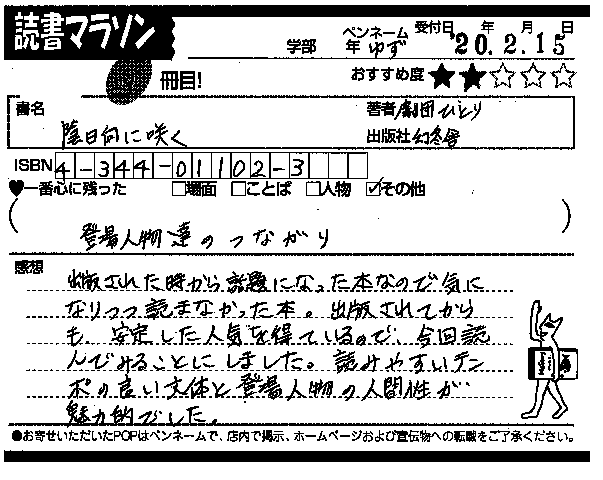 読書マラソン
ペンネーム 受付日 年 月 日
学部 年 ゆず 20.2.15
冊目! おすすめ度 ★★☆☆☆
書名 著者 劇団ひとり
陰日向に咲く 出版社 幻冬舎
ISBN 4-344-01102-3
♥一番心に残った □場面 □ことば □人物 ☑その他
( 登場人物達のつながり )
感想
出版された時から話題になった本なので気に
なりつつ読まなかった本。出版されてから
も、安定した人気を得ているので、今回読
んでみることにしました。読みやすいテン
ポの良い文体と登場人物の人間性が
魅力的でした。
●お寄せいただいたPOPはペンネームで、店内で掲示、ホームページおよび宣伝物への転載をご了承ください。